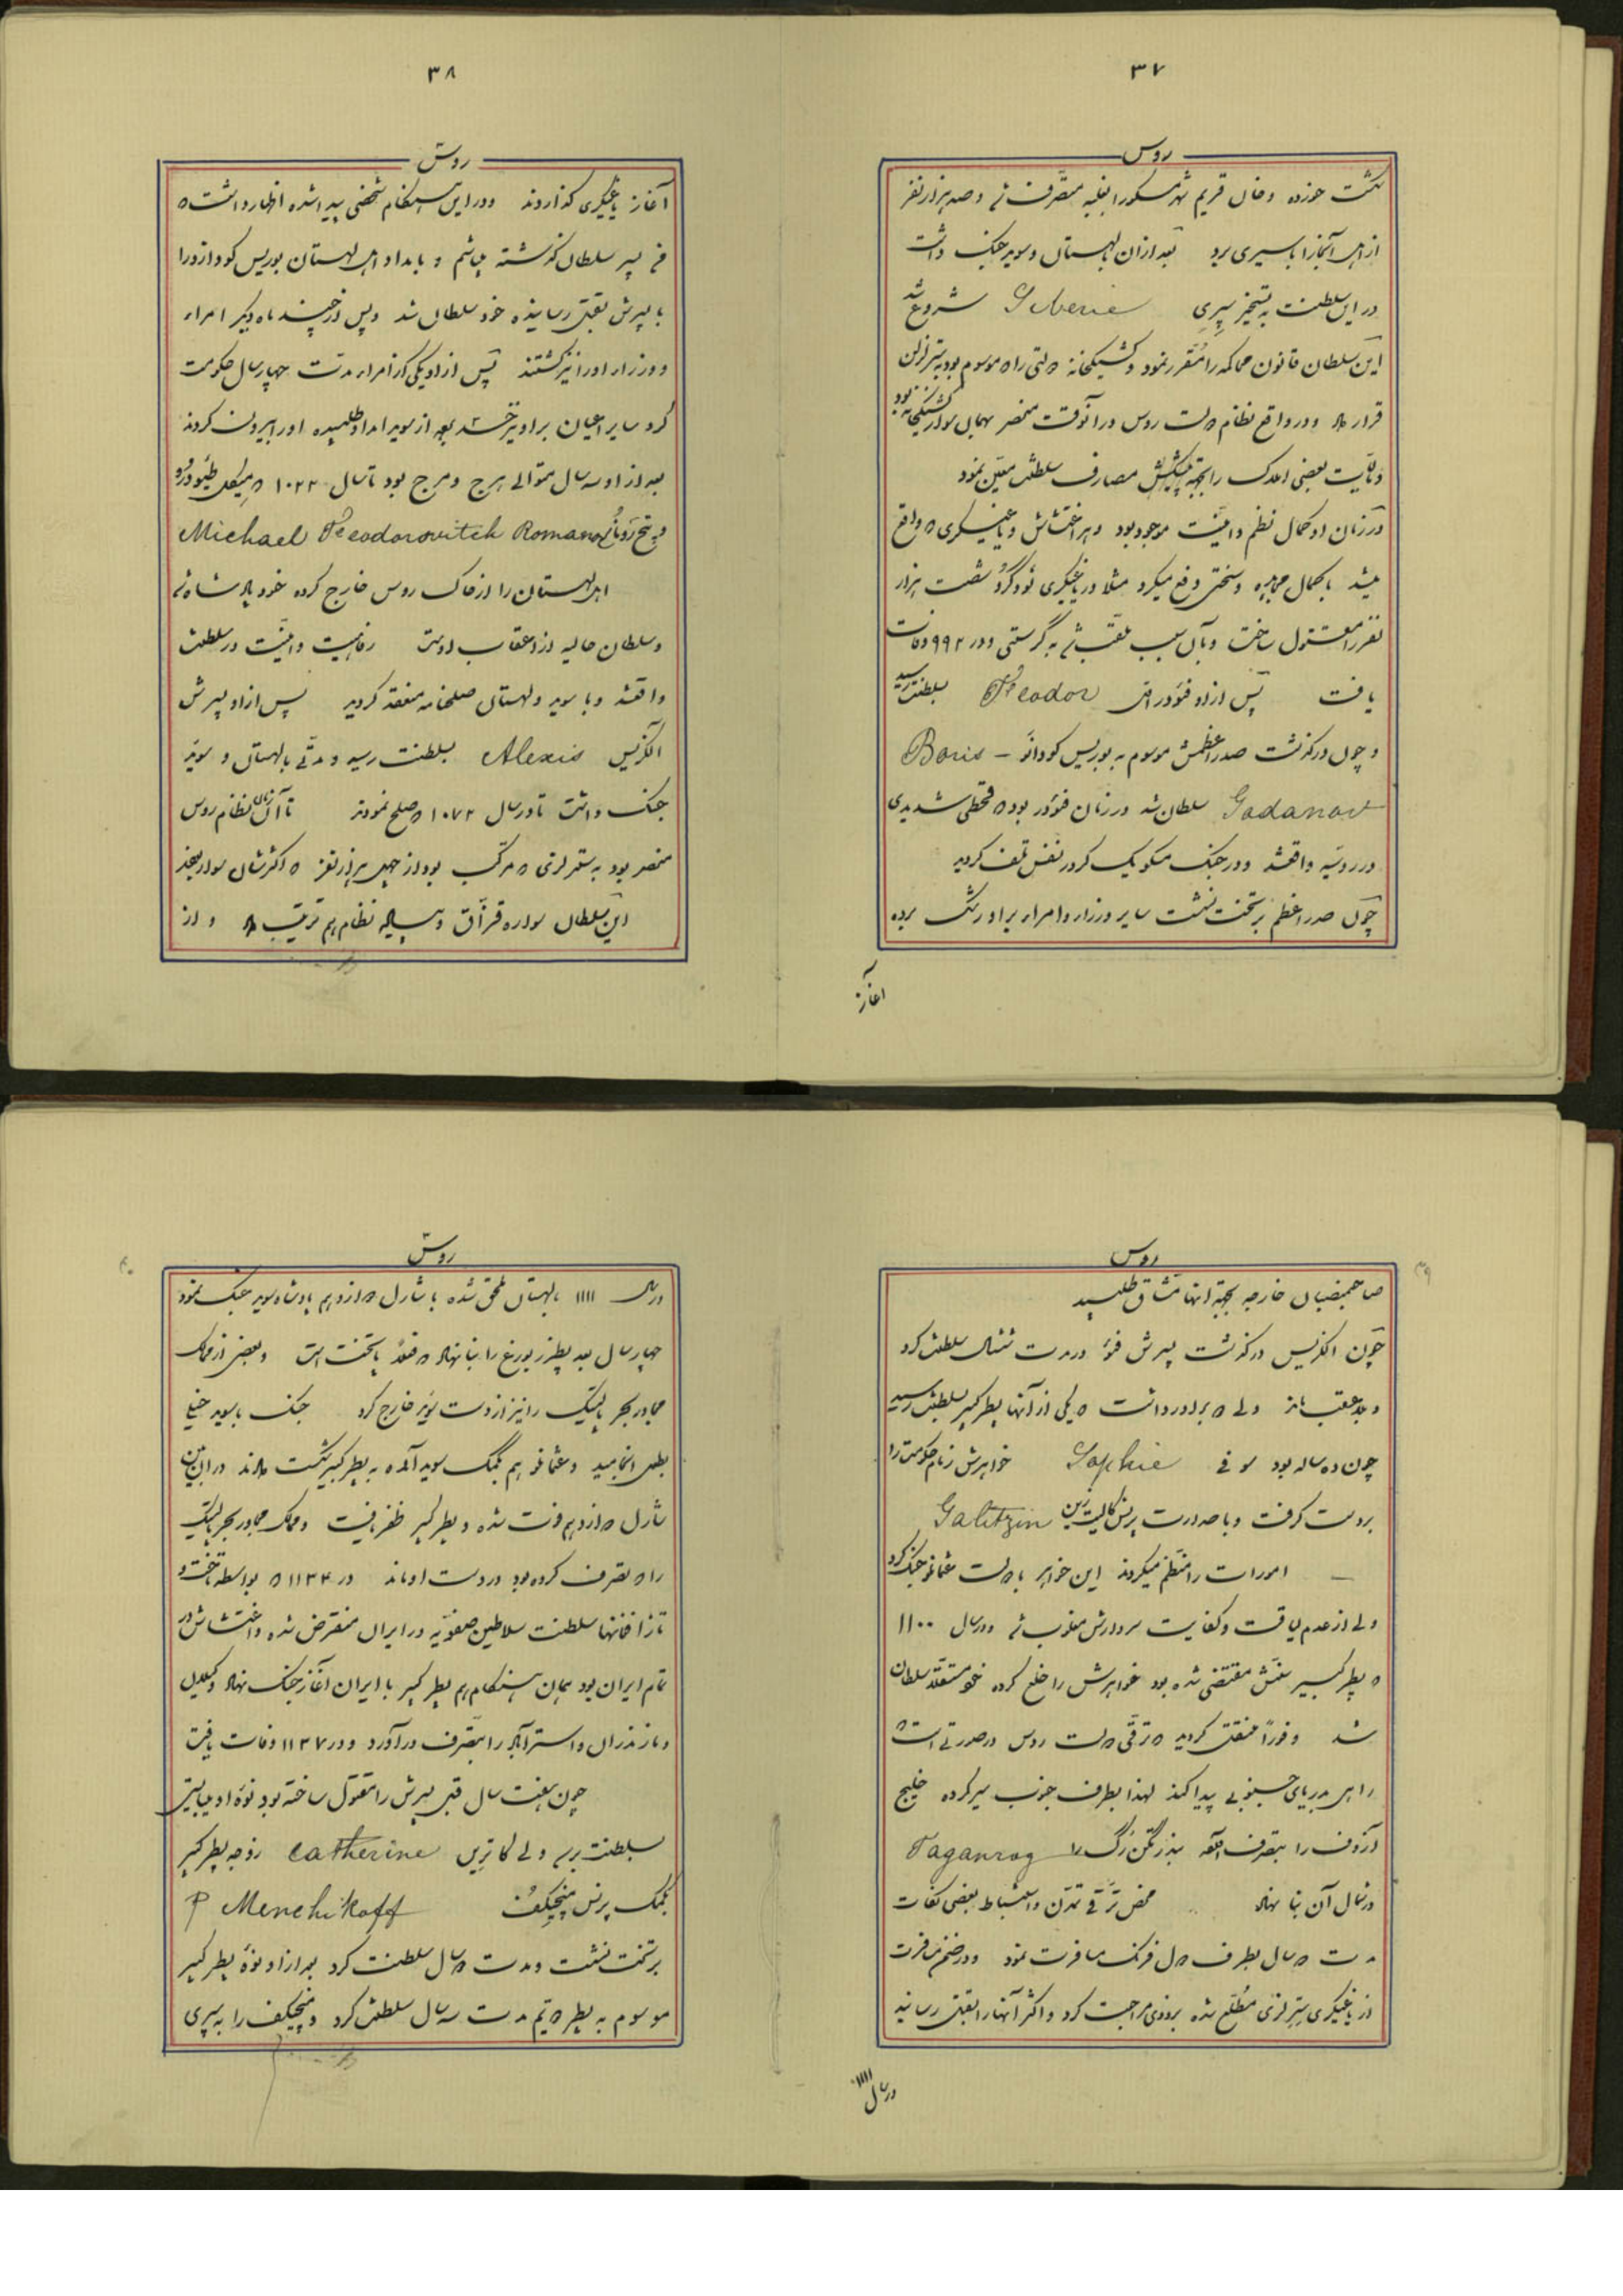 ۳۷
روس
شکست خورده و خان قریم شهر مسکو را بغلبه متصرف شد و صد هزار نفر
از اهل آنجا را باسیری برد بعد از آن با لهستان و سوید جنک داشت
در این سلطنت به تسخیر سِیبِری Siberie شروع شد
این سلطان قانون محاکمه را مقرر نمود و کشیکخانه دولتی را که موسوم بود به سترلزن
قرار داد و در واقع نظام دولت روس در آنوقت منحصر بهمان سوار کشیکخانه بود
و مالیات بعضی املاک را بجهة پیشکش مصارف سلطنتش معین نمود
در زمان او کمال نظم و امنیت موجود بود و هر اغتشاش و یاغیگری که واقع
میشد با کمال مجاهده و سختی رفع میکرد مثلا در یاغیگری نُووگرُد شصت هزار
نفر را مقتول ساخت و بآن سبب ملقب شد به گرستی و در ۹۹۲ وفات
یافت پس از او فئودر اول Feodor بسلطنت رسید
و چون درگذشت صدراعظمش موسوم به بوریس کودانُو – Boris
Godanow سلطان شد در زمان فئودر بود که قحطی شدیدی
در روسیّه واقعشد و در جنک مسکو یک کرور نفس تلف کردید
چون صدراعظم بر تخت نشست سایر وزراء و امراء بر او رشک برده
آغاز
۳۸
روس
آغاز یاغیگری گذاردند و در این هنکام شخصی پیدا شده اظهار داشت که
من پسر سلطان گذشته میباشم و بامداد اهل لهستان بوریس کودانو را
با پسرش بقتل رسانیده خود سلطان شد و پس از چند ماه دیگر امراء
و وزراء او را نیز کشتند پس از او یکی از امراء مدت چهار سال حکومت
کرد سایر اعیان بر او نیز برخاستند بعد از سوید امداد طلبیده او را بیرون کردند
بعد از او سه سال متوالی هرج و مرج بود تا سال ۱۰۲۲ که میکل فئودور
ویچ رُمانُو Michael Feodorovitch Romanow
اهل لهستان را از خاک روس خارج کرده خود پادشاه شد
و سلطان حالیه از اعقاب اوست رفاهیت و امنیّت در سلطنتش
واقعشد و با سوید و لهستان صلحنامه منعقد کردید پس از او پسرش
الکزیس Alexis بسلطنت رسید و مدتی با لهستان و سوید
جنک داشت تا در سال ۱۰۷۲ که صلح نمودند تا آن زمان نظام روس
منحصر بود به سترلزی که مرکب بود از چهل هزار نفر که اکثرشان سوار بودند
این سلطان سواره قزّاق و پیاده نظام هم ترتیب داد و از
۳۹
روس
صاحمنصبان خارجه بجهة انها مشاق طلبید
چون الکزیس درگذشت پسرش فئودر مدت شش سال سلطنت کرد
و بلاعقب ماند ولی دو برادر داشت که یکی از آنها پطر کبیر بسلطنت رسید
چون ده ساله بود سوفی Sophie خواهرش زمام حکومت را
بدست گرفت و با صدارت پرنس گالیت زین Galitzin
— امورات را منظم میکردند این خواهر با دولت عثمانی جنک کرد
ولی از عدم لیاقت و کفایت سردارش مغلوب شد و در سال ۱۱۰۰
که پطر کبیر سنّش مقتضی شده بود خواهرش را خلع کرده خود مستقلا سلطان
شد و فوراً منتقل کردید که ترقی دولت روس در صورتی است که
راهی بدریای جنوبی پیدا کند لهذا بطرف جنوب سیر کرده خلیج
آزوف را بتصرف آورد بندر تگنرگ را Taganrog
در شمال آن بنا نهاد محض ترقی تمدن و استنباط بعضی نکات
مدت دو سال بطرف دول فرنک مسافرت نمود و در ضمن مسافرت
از یاغیگری سترلزی مطلع شده بزودی مراجعت کرد و اکثر آنها را بقتل رسانید
در سال ۱۱۱۱
۴۰
روس
در سال ۱۱۱۱ با لهستان ملحق شده با شارل دوازدهم پادشاه سوید جنک نمود
چهار سال بعد پطرزبورغ را بنا نهاد که فعلاً پایتخت است و بعضی از ممالک
مجاور بحر بالتیک را نیز از دست سوید خارج کرد جنک با سوید خیلی
بطول انجامید و عثمانی هم بکمک سوید آمده به پطر کبیر شکست دادند در این بین
شارل دوازدهم فوت شده و پطر کبیر ظفر یافت و ممالک مجاور بحر بالتیک
را که تصرف کرده بود در دست او ماند در ۱۱۳۴ که بواسطه تاخت و
تاز افغانها سلطنت سلاطین صفویّه در ایران منقرض شده و اغتشاش در
تمام ایران بود همان هنکام هم پطر کبیر با ایران آغاز جنک نهاد و گیلان
و مازندران و استرآباد را بتصرف درآورد و در ۱۱۳۷ وفات یافت
چون هفت سال قبل پسرش را مقتول ساخته بود نوهٔ او میبایستی
بسلطنت برسد ولی کاترین Catherine زوجه پطر کبیر
بکمک پرنس منچیکف P Menchikoff
بر تخت نشست و مدت دو سال سلطنت کرد بعد از او نوهٔ پطر کبیر
موسوم به پطر دویم مدت سه سال سلطنت کرد و منچیکف را به سیبری